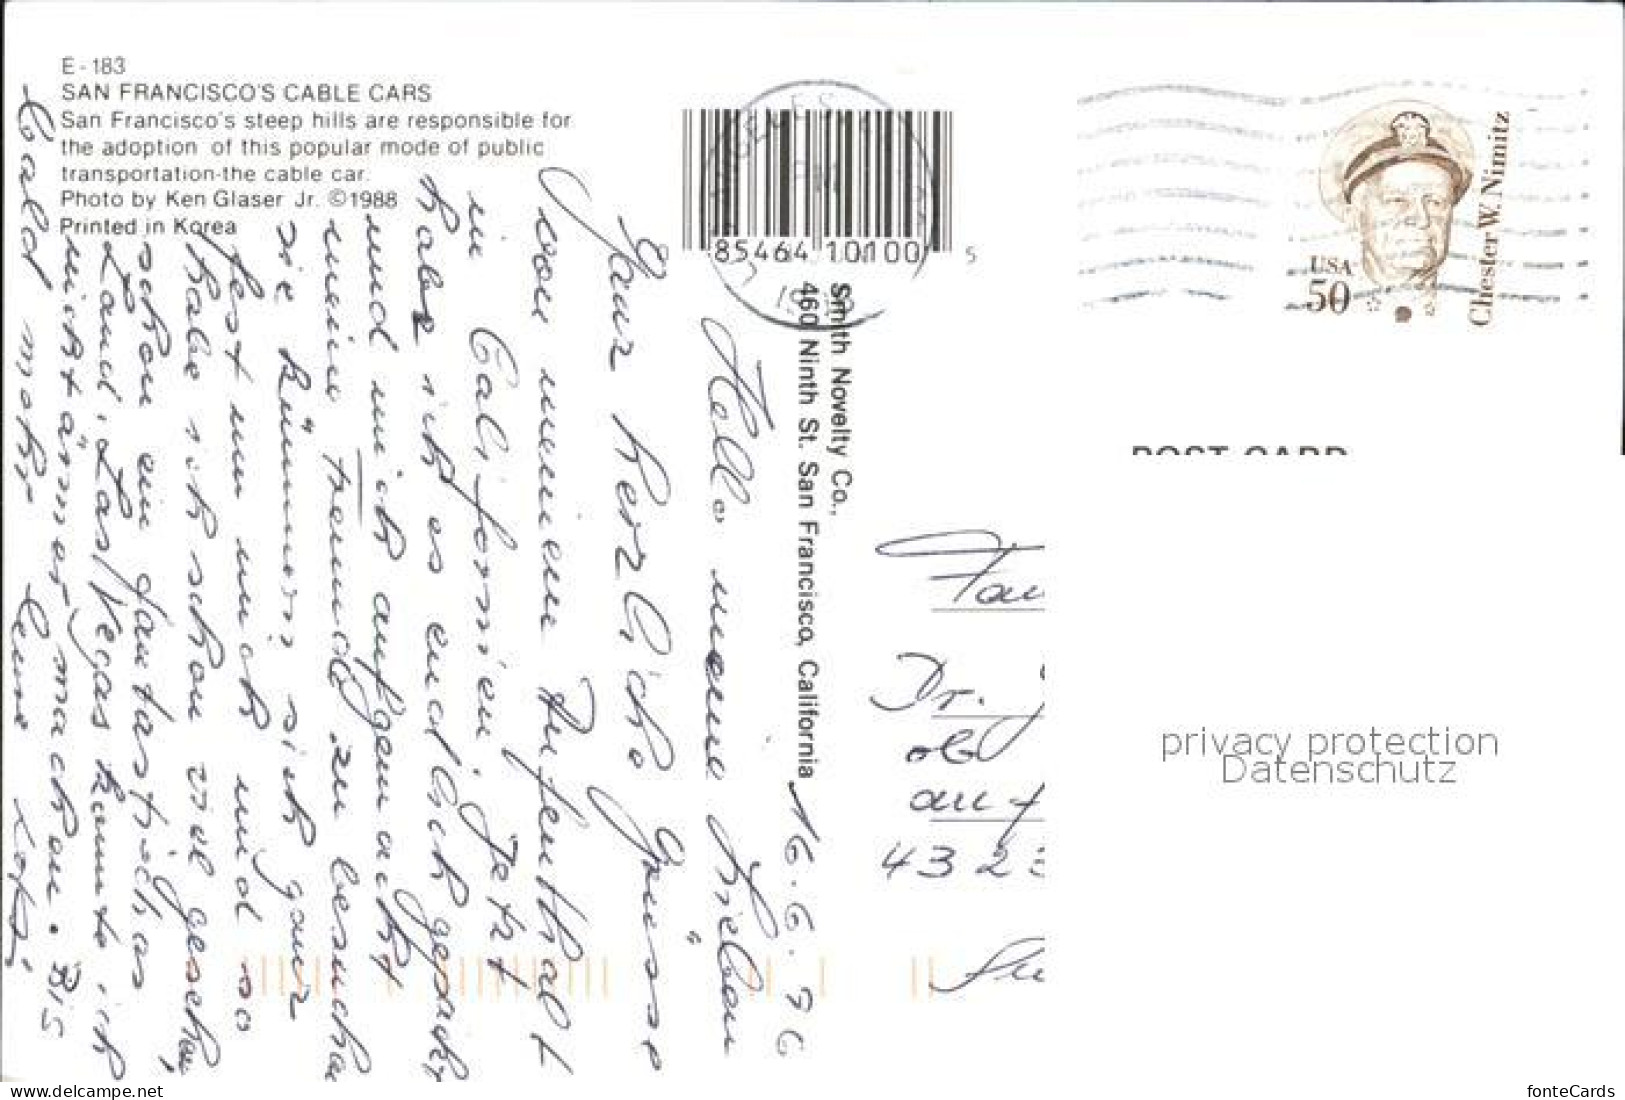 E-183
SAN FRANCISCO'S CABLE CARS
San Francisco's steep hills are responsible for
the adoption of this popular mode of public
transportation-the cable car.
Photo by Ken Glaser Jr. ©1988
Printed in Korea
85464 10100 5
Smith Novelty Co.,
460 Ninth St. San Francisco, California
USA
50
Chester W. Nimitz
POST CARD
16.6.96
Hallo meine Lieben
Ganz herzliche Grüsse
von meinem Aufenthalt
in Californien. Jetzt
habe ich es endlich gepackt
und mich aufgemacht
meine zu besuchen
sie kümmern sich ganz
fest um mich und so
habe ich schon viel gesehen,
schon ein fantastisches
Land. Las/Vegas konnte ich
nicht ärmer machen. Bis
bald mehr
Fam
Dr.
auf
432
privacy protection
Datenschutz
www.delcampe.net
fonteCards